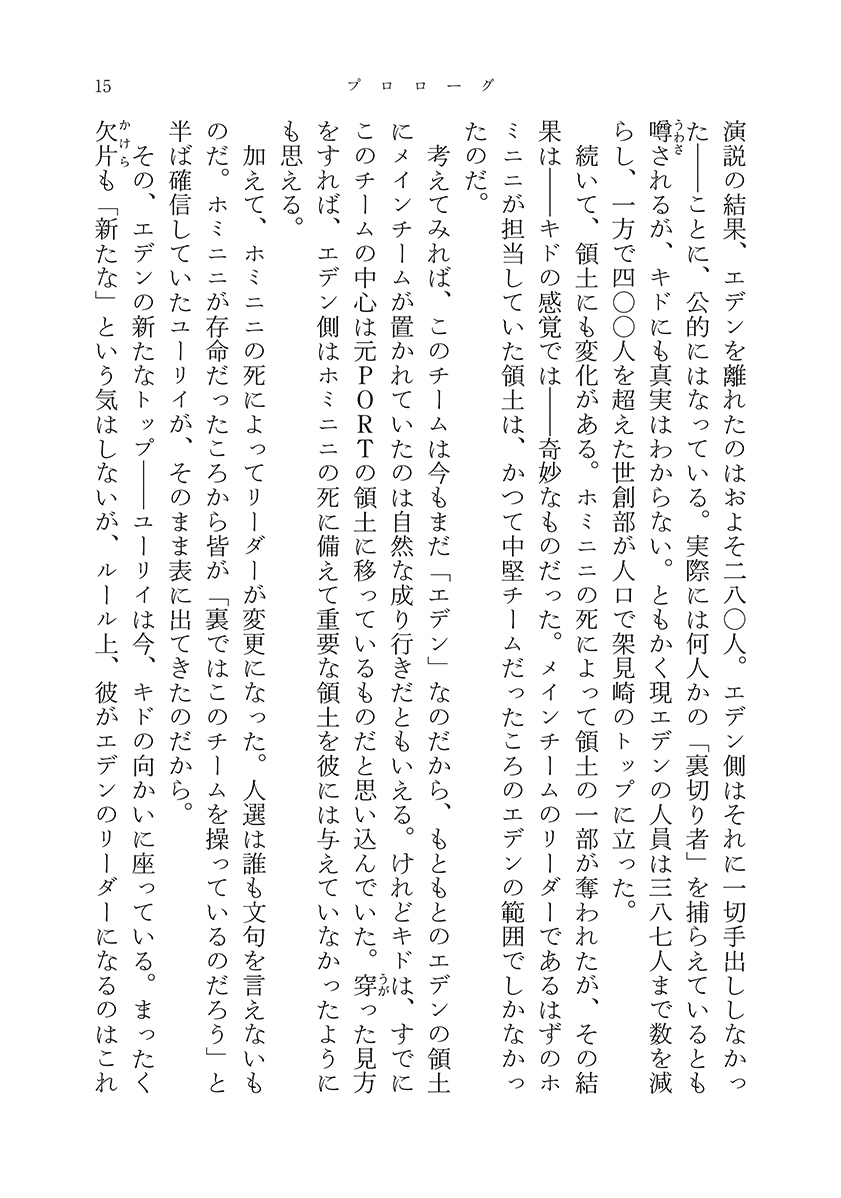 15
プロローグ
演説の結果、エデンを離れたのはおよそ二八〇人。エデン側はそれに一切手出ししなかっ
た――ことに、公的にはなっている。実際には何人かの「裏切り者」を捕らえているとも
噂されるが、キドにも真実はわからない。ともかく現エデンの人員は三八七人まで数を減
うわさ
らし、一方で四〇〇人を超えた世創部が人口で架見崎のトップに立った。
続いて、領土にも変化がある。ホミニニの死によって領土の一部が奪われたが、その結
果は――キドの感覚では――奇妙なものだった。メインチームのリーダーであるはずのホ
ミニニが担当していた領土は、かつて中堅チームだったころのエデンの範囲でしかなかっ
たのだ。
考えてみれば、このチームは今もまだ「エデン」なのだから、もともとのエデンの領土
にメインチームが置かれていたのは自然な成り行きだともいえる。けれどキドは、すでに
このチームの中心は元PORTの領土に移っているものだと思い込んでいた。穿った見方
うが
をすれば、エデン側はホミニニの死に備えて重要な領土を彼には与えていなかったように
も思える。
加えて、ホミニニの死によってリーダーが変更になった。人選は誰も文句を言えないも
のだ。ホミニニが存命だったころから皆が「裏ではこのチームを操っているのだろう」と
半ば確信していたユーリイが、そのまま表に出てきたのだから。
その、エデンの新たなトップ――ユーリイは今、キドの向かいに座っている。まったく
欠片も「新たな」という気はしないが、ルール上、彼がエデンのリーダーになるのはこれ
かけら